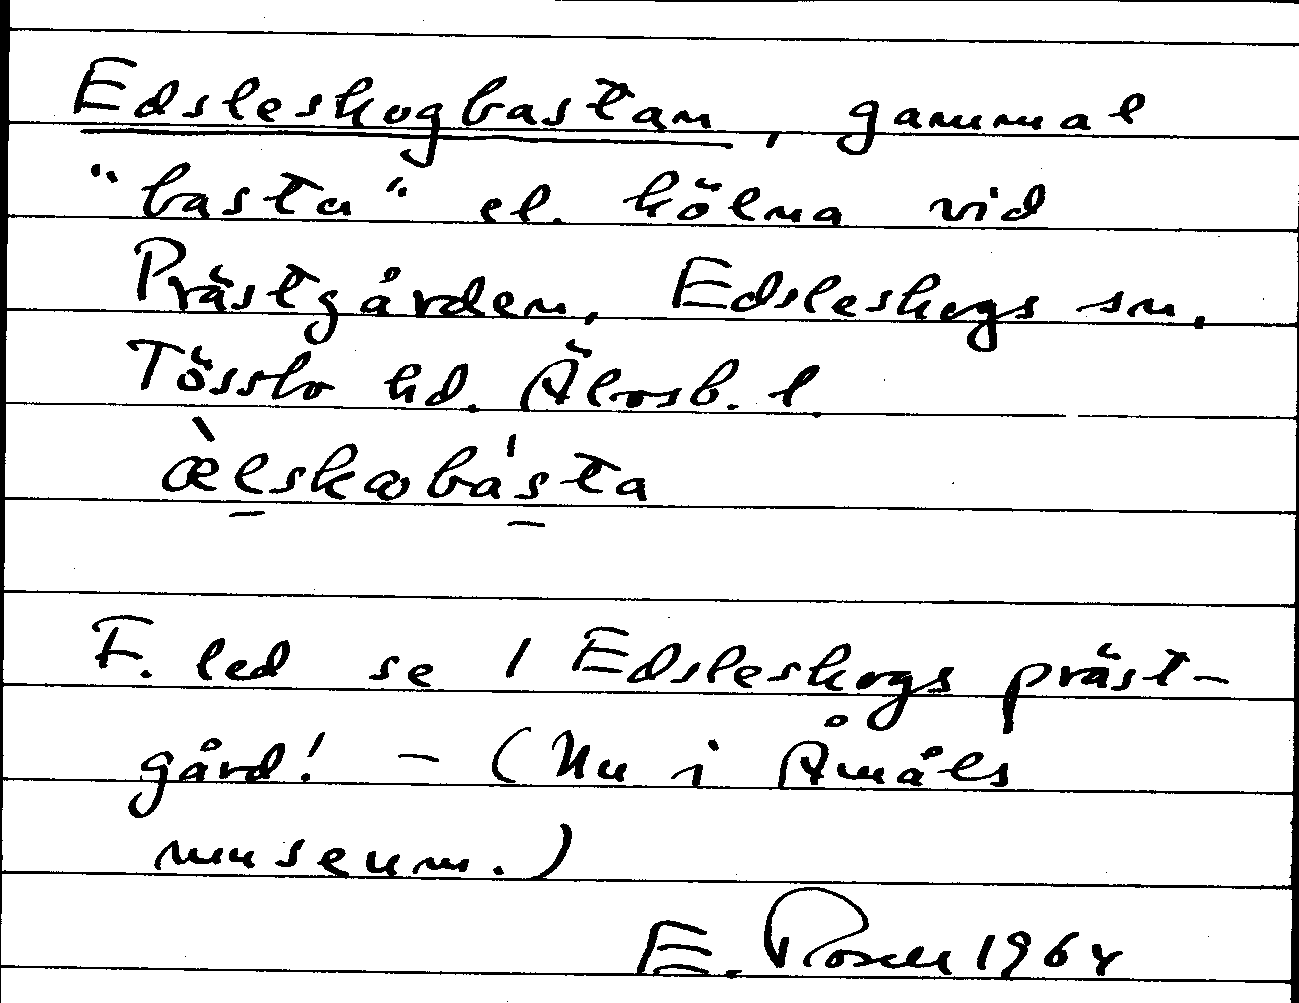 Edsleskogbastan, gammal
"basta" el. kölna vid
Prästgården, Edsleskogs sn,
Tössbo hd. Älvsb. l.
F. led se / Edsleskogs präst-
gård! - (Nu i Åmåls
museum.)
E. 1964